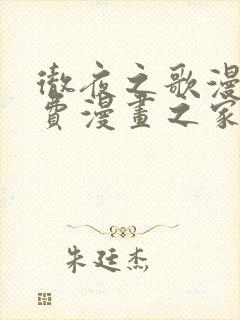 徹夜之歌漫
費漫畫之家
朱廷杰